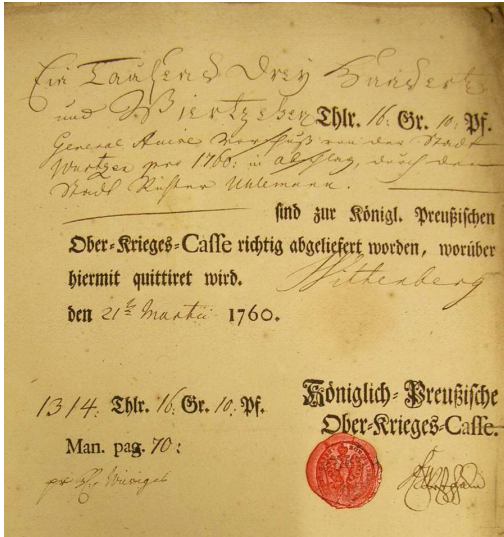 Ein Tausend Drey Hundert
und Viertzehen Thlr. 16. Gr. 10. Pf.
General Accise Vorschuß von der Stadt
Wurtzen pro 1760: in abschlag, durch den
Stadt Richter Uhlemann.
sind zur Königl. Preußischen
Ober-Krieges-Casse richtig abgeliefert worden, worüber
hiermit quittiret wird. Wittenberg
den 21t Martii 1760.
1314. Thlr. 16. Gr. 10. Pf.
Man. pag. 70:
Königlich-Preußische
Ober-Krieges-Casse.